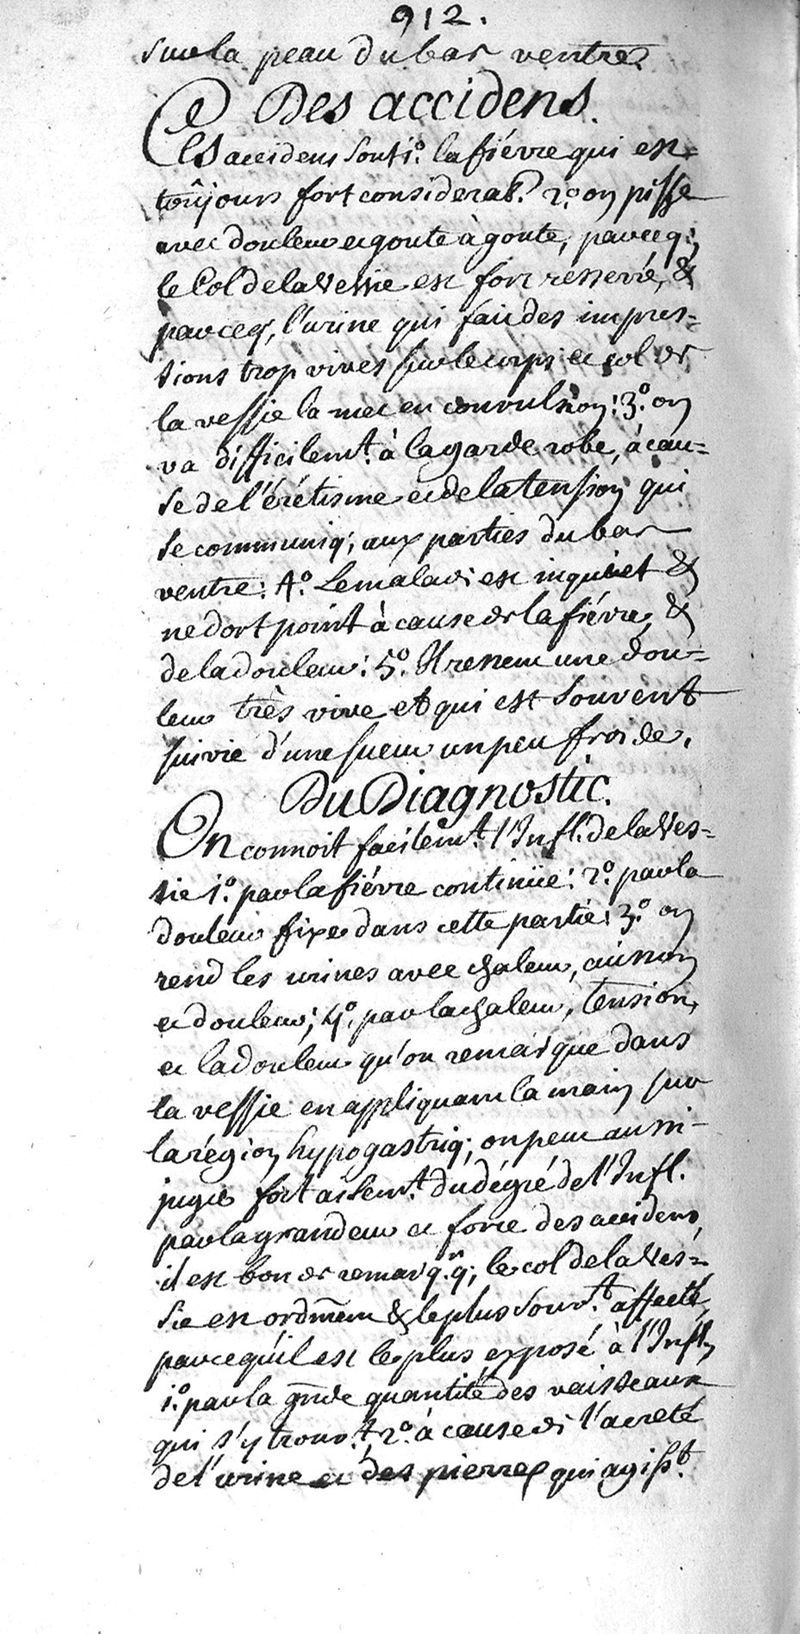 912.
sur la peau du bas ventre.
Des accidens.
Les accidens sont 1.º la fiévre qui est
toûjours fort considerab. 2.º on pisse
avec douleur et goute à goute, parceq;
le Col de la Vessie est fort resserré, &
parceq; l'urine qui fait des impres=
sions trop vives sur le corps et col de
la vessie la met en convulsion: 3.º on
va difficilem.t à la garde robe, à cau=
se de l'érétisme et de la tension qui
se communiq; aux parties du bas
ventre: 4.º Le malade est inquiet &
ne dort point à cause de la fiévre, &
de la douleur: 5.º Il ressent une dou=
leur très vive et qui est souvent
suivie d'une sueur un peu froide.
Du Diagnostic.
On connoit facilem.t l'Infl. de la Ves=
sie 1.º par la fiévre continüe: 2.º par la
douleur fixe dans cette partie: 3.º on
rend les urines avec chaleur, cuisson
et douleur; 4.º par la chaleur, tension,
et la douleur qu'on remarque dans
la vessie en appliquant la main sur
la région hypogastriq; on peut aussi
juger fort aisem.t du dégré de l'Infl.
par la grandeur et force des accidens,
il est bon de remarq.r q; le col de la Ves=
sie est ordrem̃ent & le plus souv.t affecté,
parcequ'il est le plus exposé à l'Infl,
1.º par la gr̃nde quantité des vaisseaux
qui s'y trouv.t, 2.º à cause de l'acreté
de l'urine et des pierres qui agiss.t